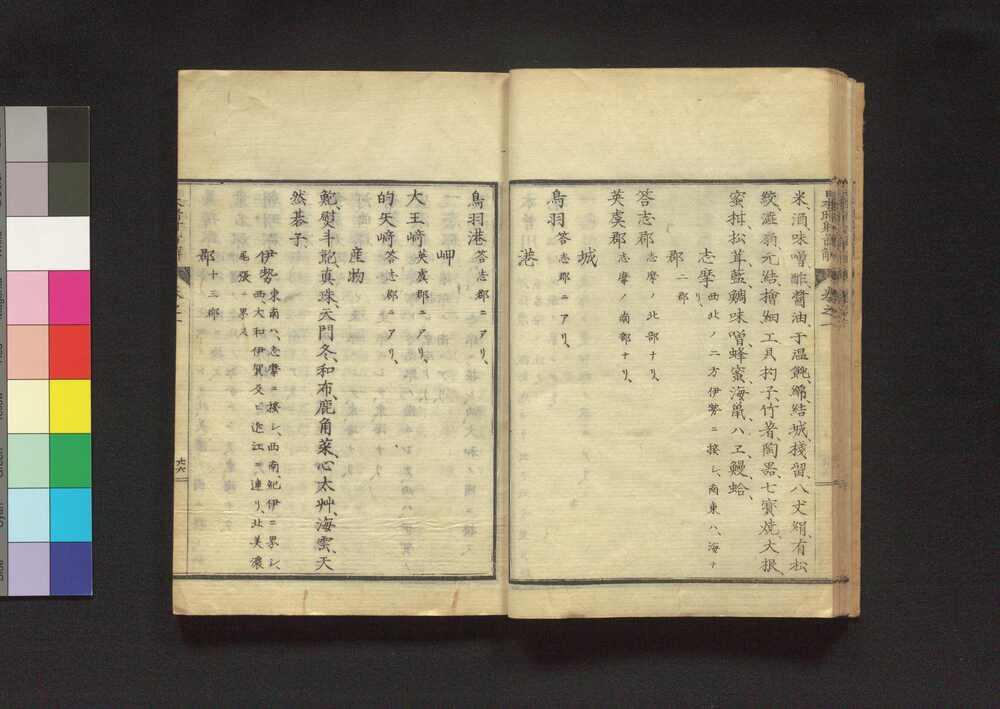 米、酒、味噌、酢、醤油、干温飩、綿、結城棧留、八丈絹、有松
絞、渋扇、元結、檜細工具、杓子、竹箸、陶器、七宝焼、大根、
蜜柑、松茸、藍、鯛味噌、蜂蜜、海鼠、ハエ、鰻、蛤、
志摩 西北ノ二方伊勢ニ接シ、南東ハ、海ナ
リ、
郡 二郡
答志郡 志摩ノ北部ナリ、
英虞郡 志摩ノ南部ナリ、
城
鳥羽 答志郡ニアリ、
港
鳥羽港 答志郡ニアリ、
岬
大王﨑 英虞郡ニアリ、
的矢﨑 答志郡ニアリ、
産物
鮑、熨斗鮑、真珠、天門冬、和布、鹿角菜、心太艸、海雲、天
然碁子、
伊勢 東南ハ、志摩ニ接シ、西南、紀伊ニ界シ、
西、大和伊賀及ビ近江ニ連リ、北美濃
尾張ニ界ス
郡 十三郡